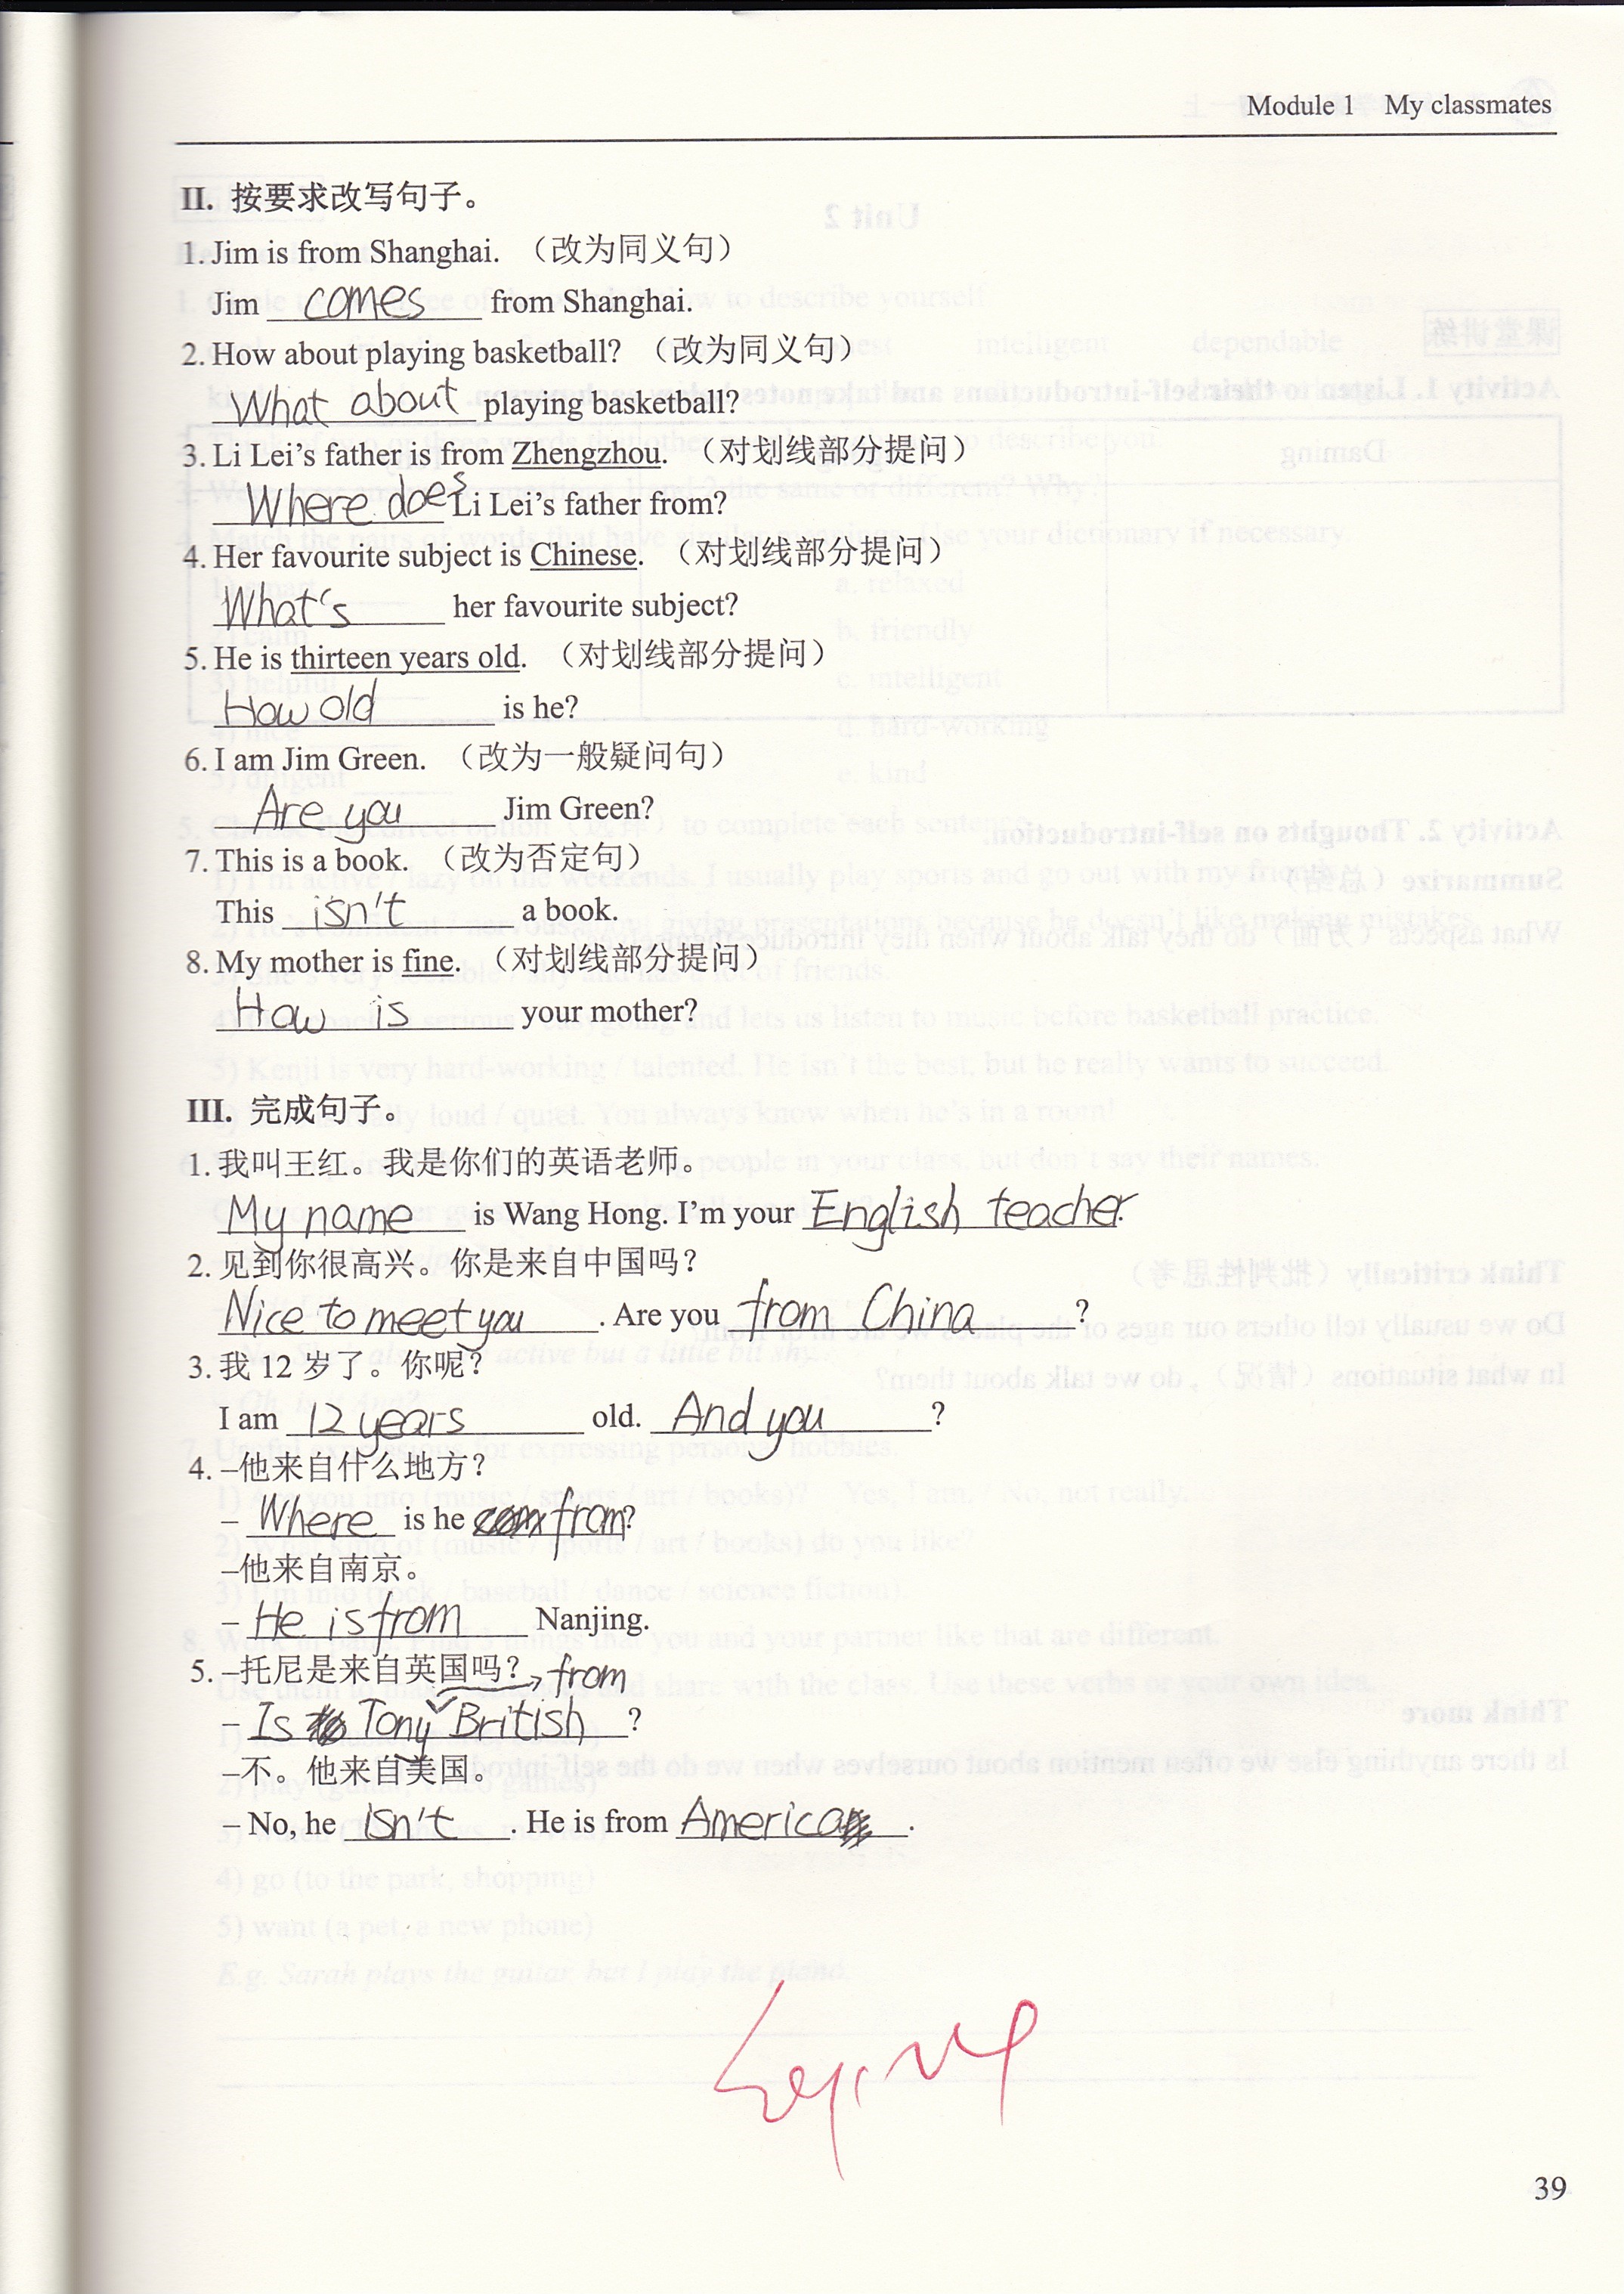 Module 1 My classmates
II. 按要求改写句子。
1. Jim is from Shanghai. （改为同义句）
Jim comes from Shanghai.
2. How about playing basketball? （改为同义句）
What about playing basketball?
3. Li Lei's father is from Zhengzhou. （对划线部分提问）
Where does Li Lei's father from?
4. Her favourite subject is Chinese. （对划线部分提问）
What's her favourite subject?
5. He is thirteen years old. （对划线部分提问）
How old is he?
6. I am Jim Green. （改为一般疑问句）
Are you Jim Green?
7. This is a book. （改为否定句）
This isn't a book.
8. My mother is fine. （对划线部分提问）
How is your mother?
III. 完成句子。
1. 我叫王红。我是你们的英语老师。
My name is Wang Hong. I'm your English teacher.
2. 见到你很高兴。你是来自中国吗？
Nice to meet you. Are you from China?
3. 我 12 岁了。你呢？
I am 12 years old. And you?
4. –他来自什么地方？
– Where is he from?
–他来自南京。
– He is from Nanjing.
5. –托尼是来自英国吗？ from
– Is Tony British?
–不。他来自美国。
– No, he isn't. He is from America.
39